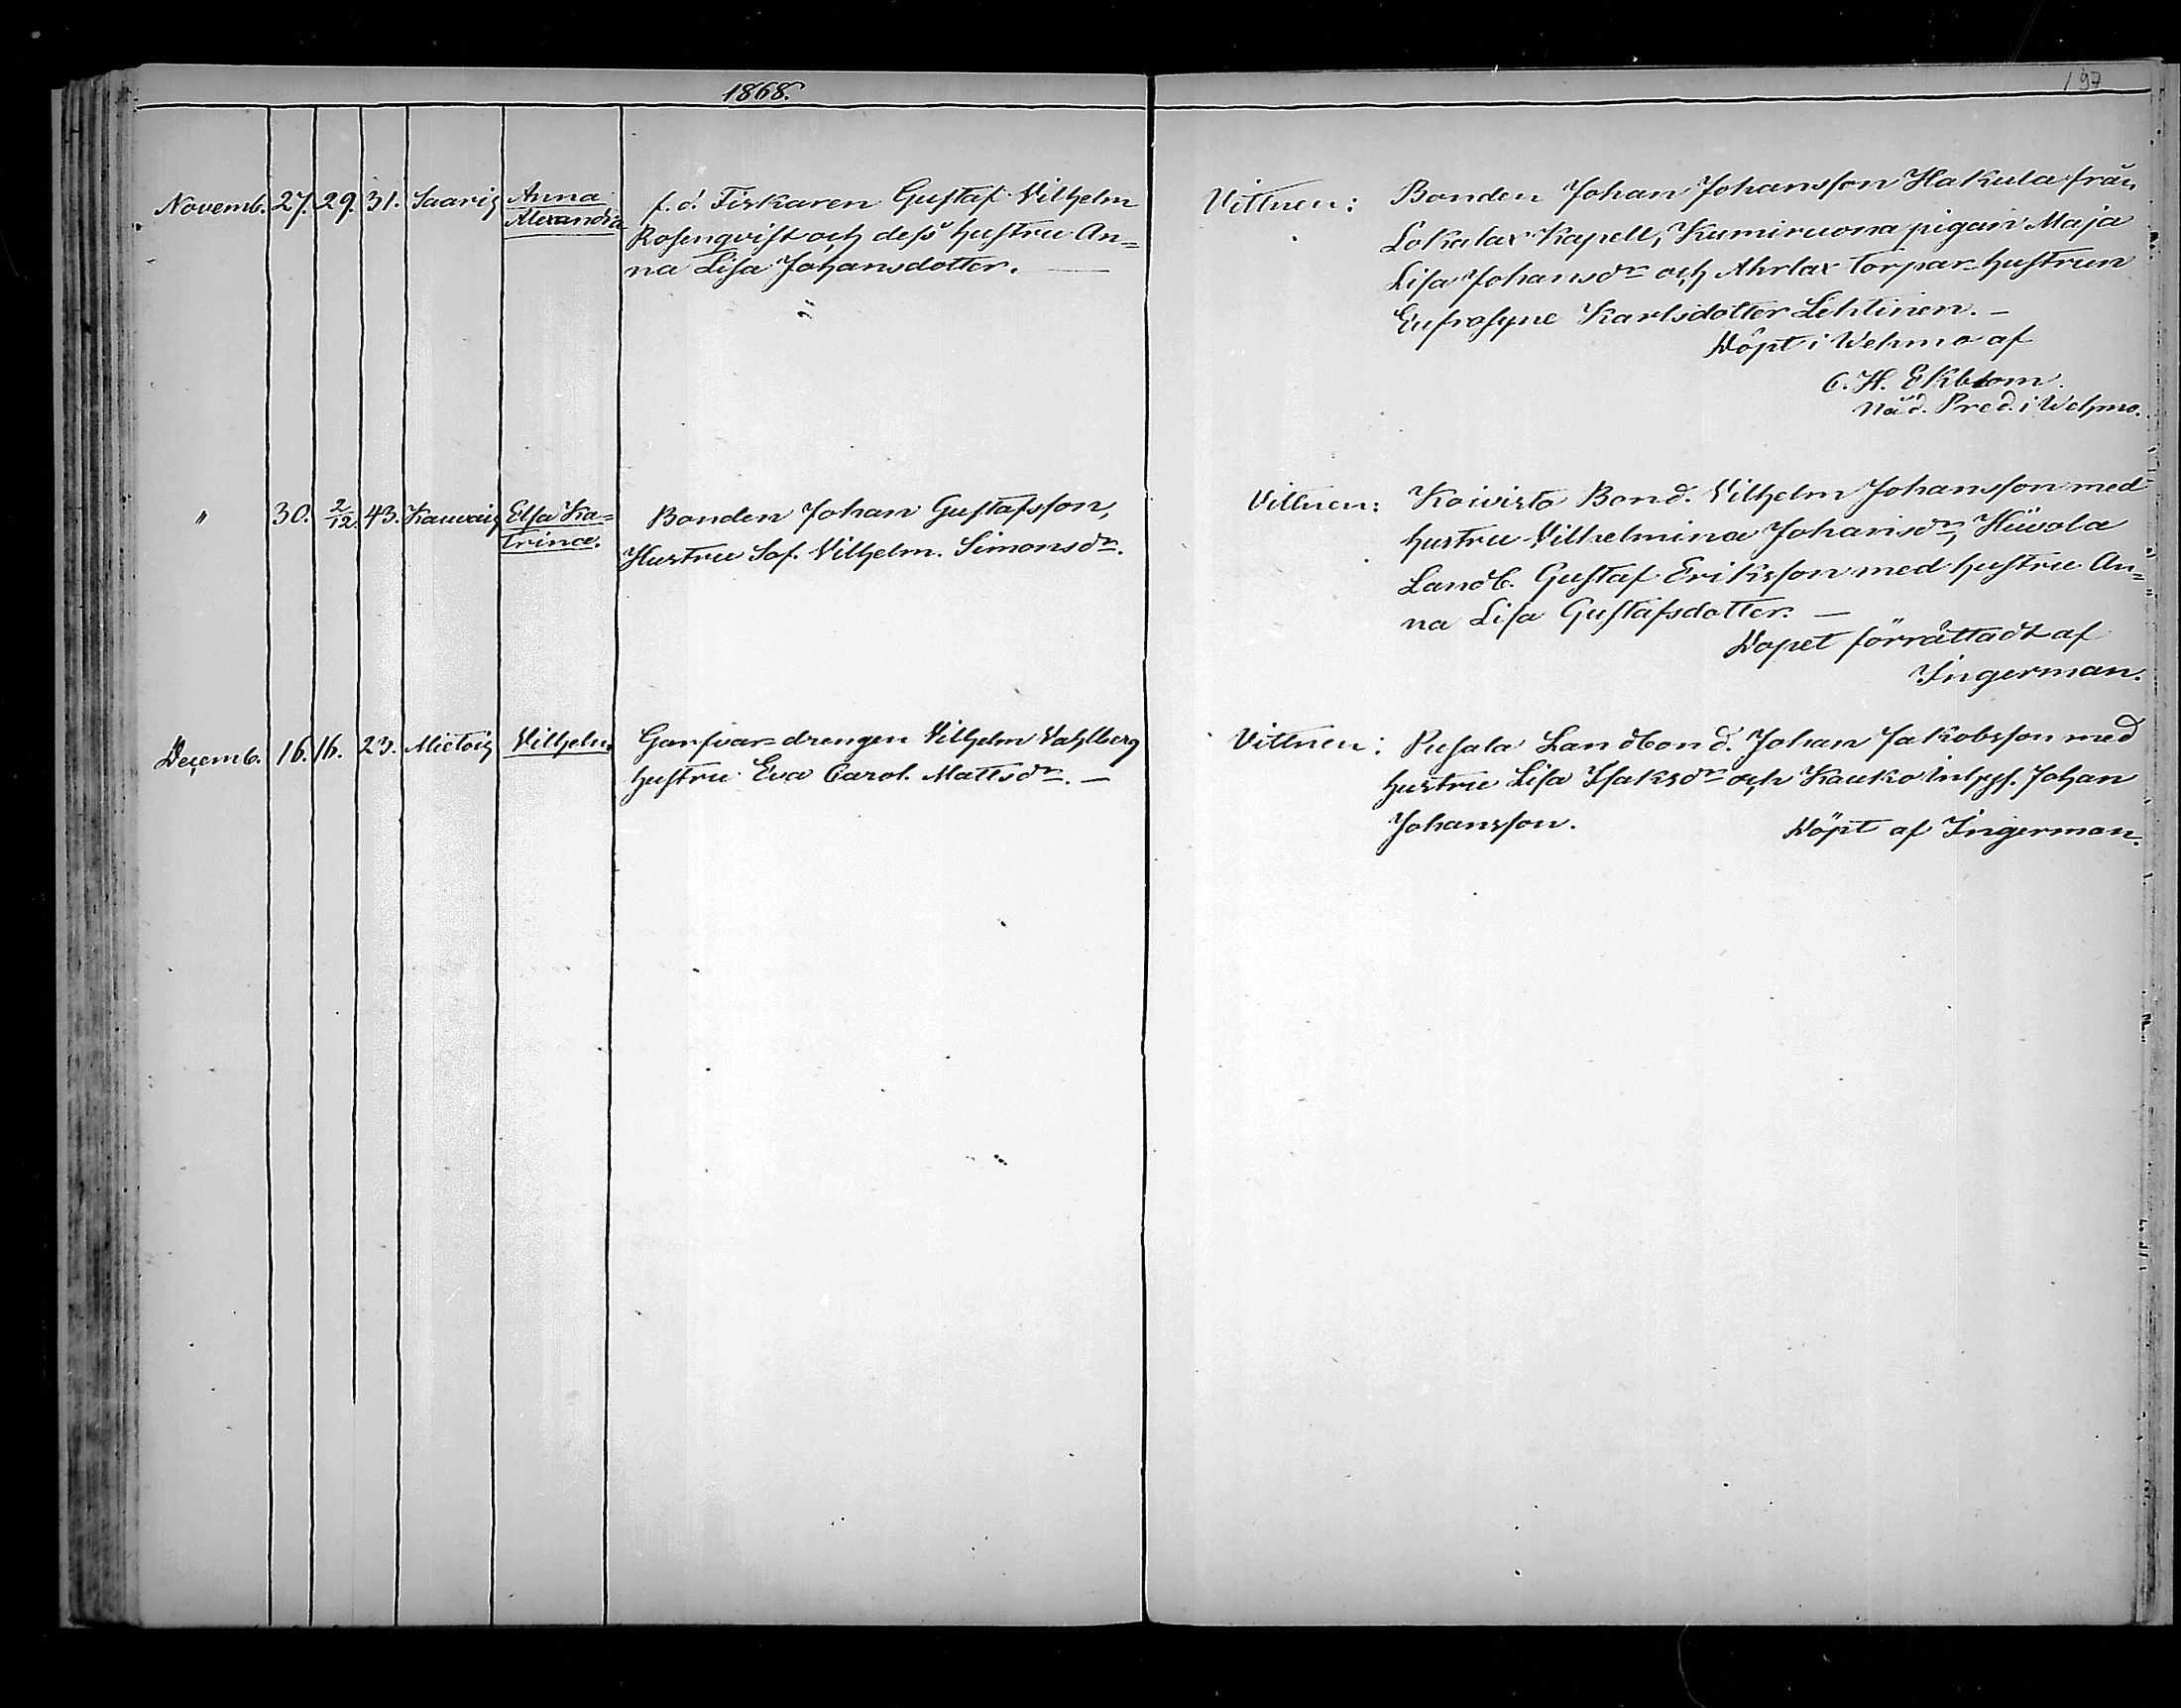 1868.
197
Novemb. 27. 29. 31. Saaris Anna
Alexandra
f. d. Fiskaren Gustaf Vilhelm
Rosenqvist och dess hustru An=
na Lisa Johansdotter.
Vittnen: Bonden Johan Johansson Hakula från
Lokalax Kapell, Kumiruona pigan Maja
Lisa Johansdr och Ahrlax torpar-hustrun
Eufrosyne Karlsdotter Lehtinen. –
Döpt i Wehmo af
C. H. Ekblom.
Nåd. Pred. i Wehmo.
" 30. 2/12. 43. Elsa Ka=
trina.
Bonden Johan Gustafsson,
Hustru Sof. Vilhelm. Simonsdr.
Vittnen: Koivisto Bond. Vilhelm Johansson med
hustru Vilhelmina Johansdr, Hüvola
Landb. Gustaf Eriksson med hustru An=
na Lisa Gustafsdotter. –
Dopet förrättadt af
Ingerman.
Decemb. 16. 16. 23. Mietois Vilhelm
Garfvar-drengen Vilhelm Vahlberg
hustru Eva Carol. Mattsdr. –
Vittnen: Pusala Landbond. Johan Jakobsson med
hustru Lisa Isaksdr och Kauko Inhys. Johan
Johansson. Döpt af Ingerman.